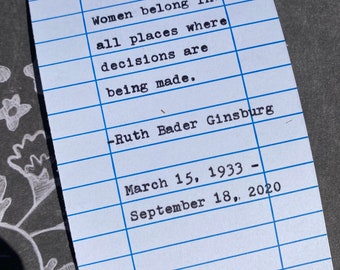 Women belong in
all places where
decisions are
being made.
-Ruth Bader Ginsburg
March 15, 1933 -
September 18, 2020